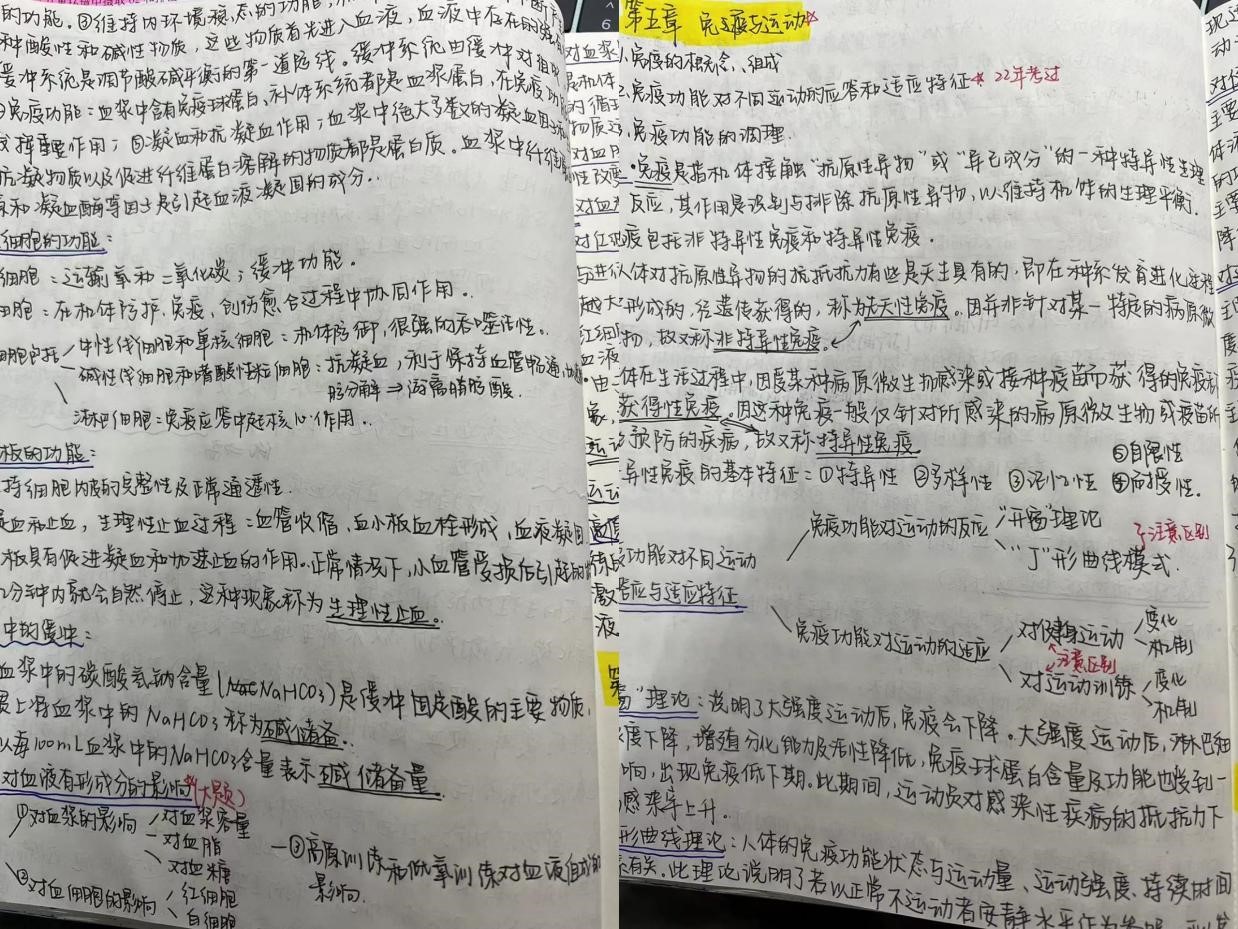 的功能，③维持内环境稳态的功能，
种酸性和碱性物质，这些物质首先进入血液，血液中存在的
缓冲系统是调节酸碱平衡的第一道防线。缓冲系统由缓冲对组成
免疫功能：血浆中含有免疫球蛋白，补体系统都是血浆蛋白，在免疫功能
挥重要作用；⑤凝血和抗凝血作用；血浆中绝大多数的凝血因子
抗凝物质以及促进纤维蛋白溶解的物质都是蛋白质。血浆中纤维
原和凝血酶等因子是引起血液凝固的成分。
细胞的功能：
细胞：运输氧和二氧化碳；缓冲功能。
细胞：在机体防护、免疫、创伤愈合过程中协同作用。
细胞包括
中性粒细胞和单核细胞：机体防御，很强的吞噬活性。
碱性粒细胞和嗜酸性粒细胞：抗凝血，利于保持血管畅通，
脂肪分解→游离脂肪酸.
淋巴细胞：免疫应答中起核心作用.
板的功能：
持细胞内皮的完整性及正常通透性.
凝血和止血，生理性止血过程：血管收缩、血小板血栓形成、血液凝固.
板具有促进凝血和加速止血的作用.正常情况下，小血管受损后引起的
几分钟内就会自然停止，这种现象称为生理性止血.
中的缓冲：
血浆中的碳酸氢钠含量(NaHCO3)是缓冲固定酸的主要物质，
上将血浆中的NaHCO3称为碱储备.
以每100mL血浆中的NaHCO3含量表示碱储备量.
对血液有形成分的影响*(大题)
①对血浆的影响
对血浆容量
对血脂
对血糖
②对血细胞的影响
红细胞
白细胞
③高原训练和低氧训练对血液有形成分的
影响.
第五章 免疫与运动*
1.免疫的概念、组成
2.免疫功能对不同运动的应答和适应特征* 22年考过
免疫功能的调理.
免疫是指机体接触“抗原性异物”或“异己成分”的一种特异性生理
反应，其作用是识别与排除抗原性异物，以维持机体的生理平衡.
疫包括非特异性免疫和特异性免疫.
人体对抗原性异物的抵抗力有些是天生具有的，即在种系发育进化过程
形成的，经遗传获得的，称为先天性免疫。因并非针对某一特定的病原微
物，故又称非特异性免疫.
体在生活过程中，因受某种病原微生物感染或接种疫苗而获得的免疫
获得性免疫。因这种免疫一般仅针对所感染的病原微生物或疫苗所
预防的疾病，故又称特异性免疫
⑤自限性
异性免疫的基本特征：①特异性 ②多样性 ③记忆性 ④耐受性.
免疫功能对运动的反应
“开窗”理论
“J”形曲线模式.
注意区别
功能对不同运动
答应与适应特征
免疫功能对运动的适应
对健身运动
变化
机制
注意区别
对运动训练
变化
机制
窗”理论：说明了大强度运动后，免疫会下降。大强度运动后，淋巴细
度下降，增殖分化能力及活性降低，免疫球蛋白含量及功能也受到一
响，出现免疫低下期.此期间，运动员对感染性疾病的抵抗力下
感染率上升。
形曲线理论：人体的免疫功能状态与运动量、运动强度、持续时间
有关。此理论说明了若以正常不运动者安静水平作为